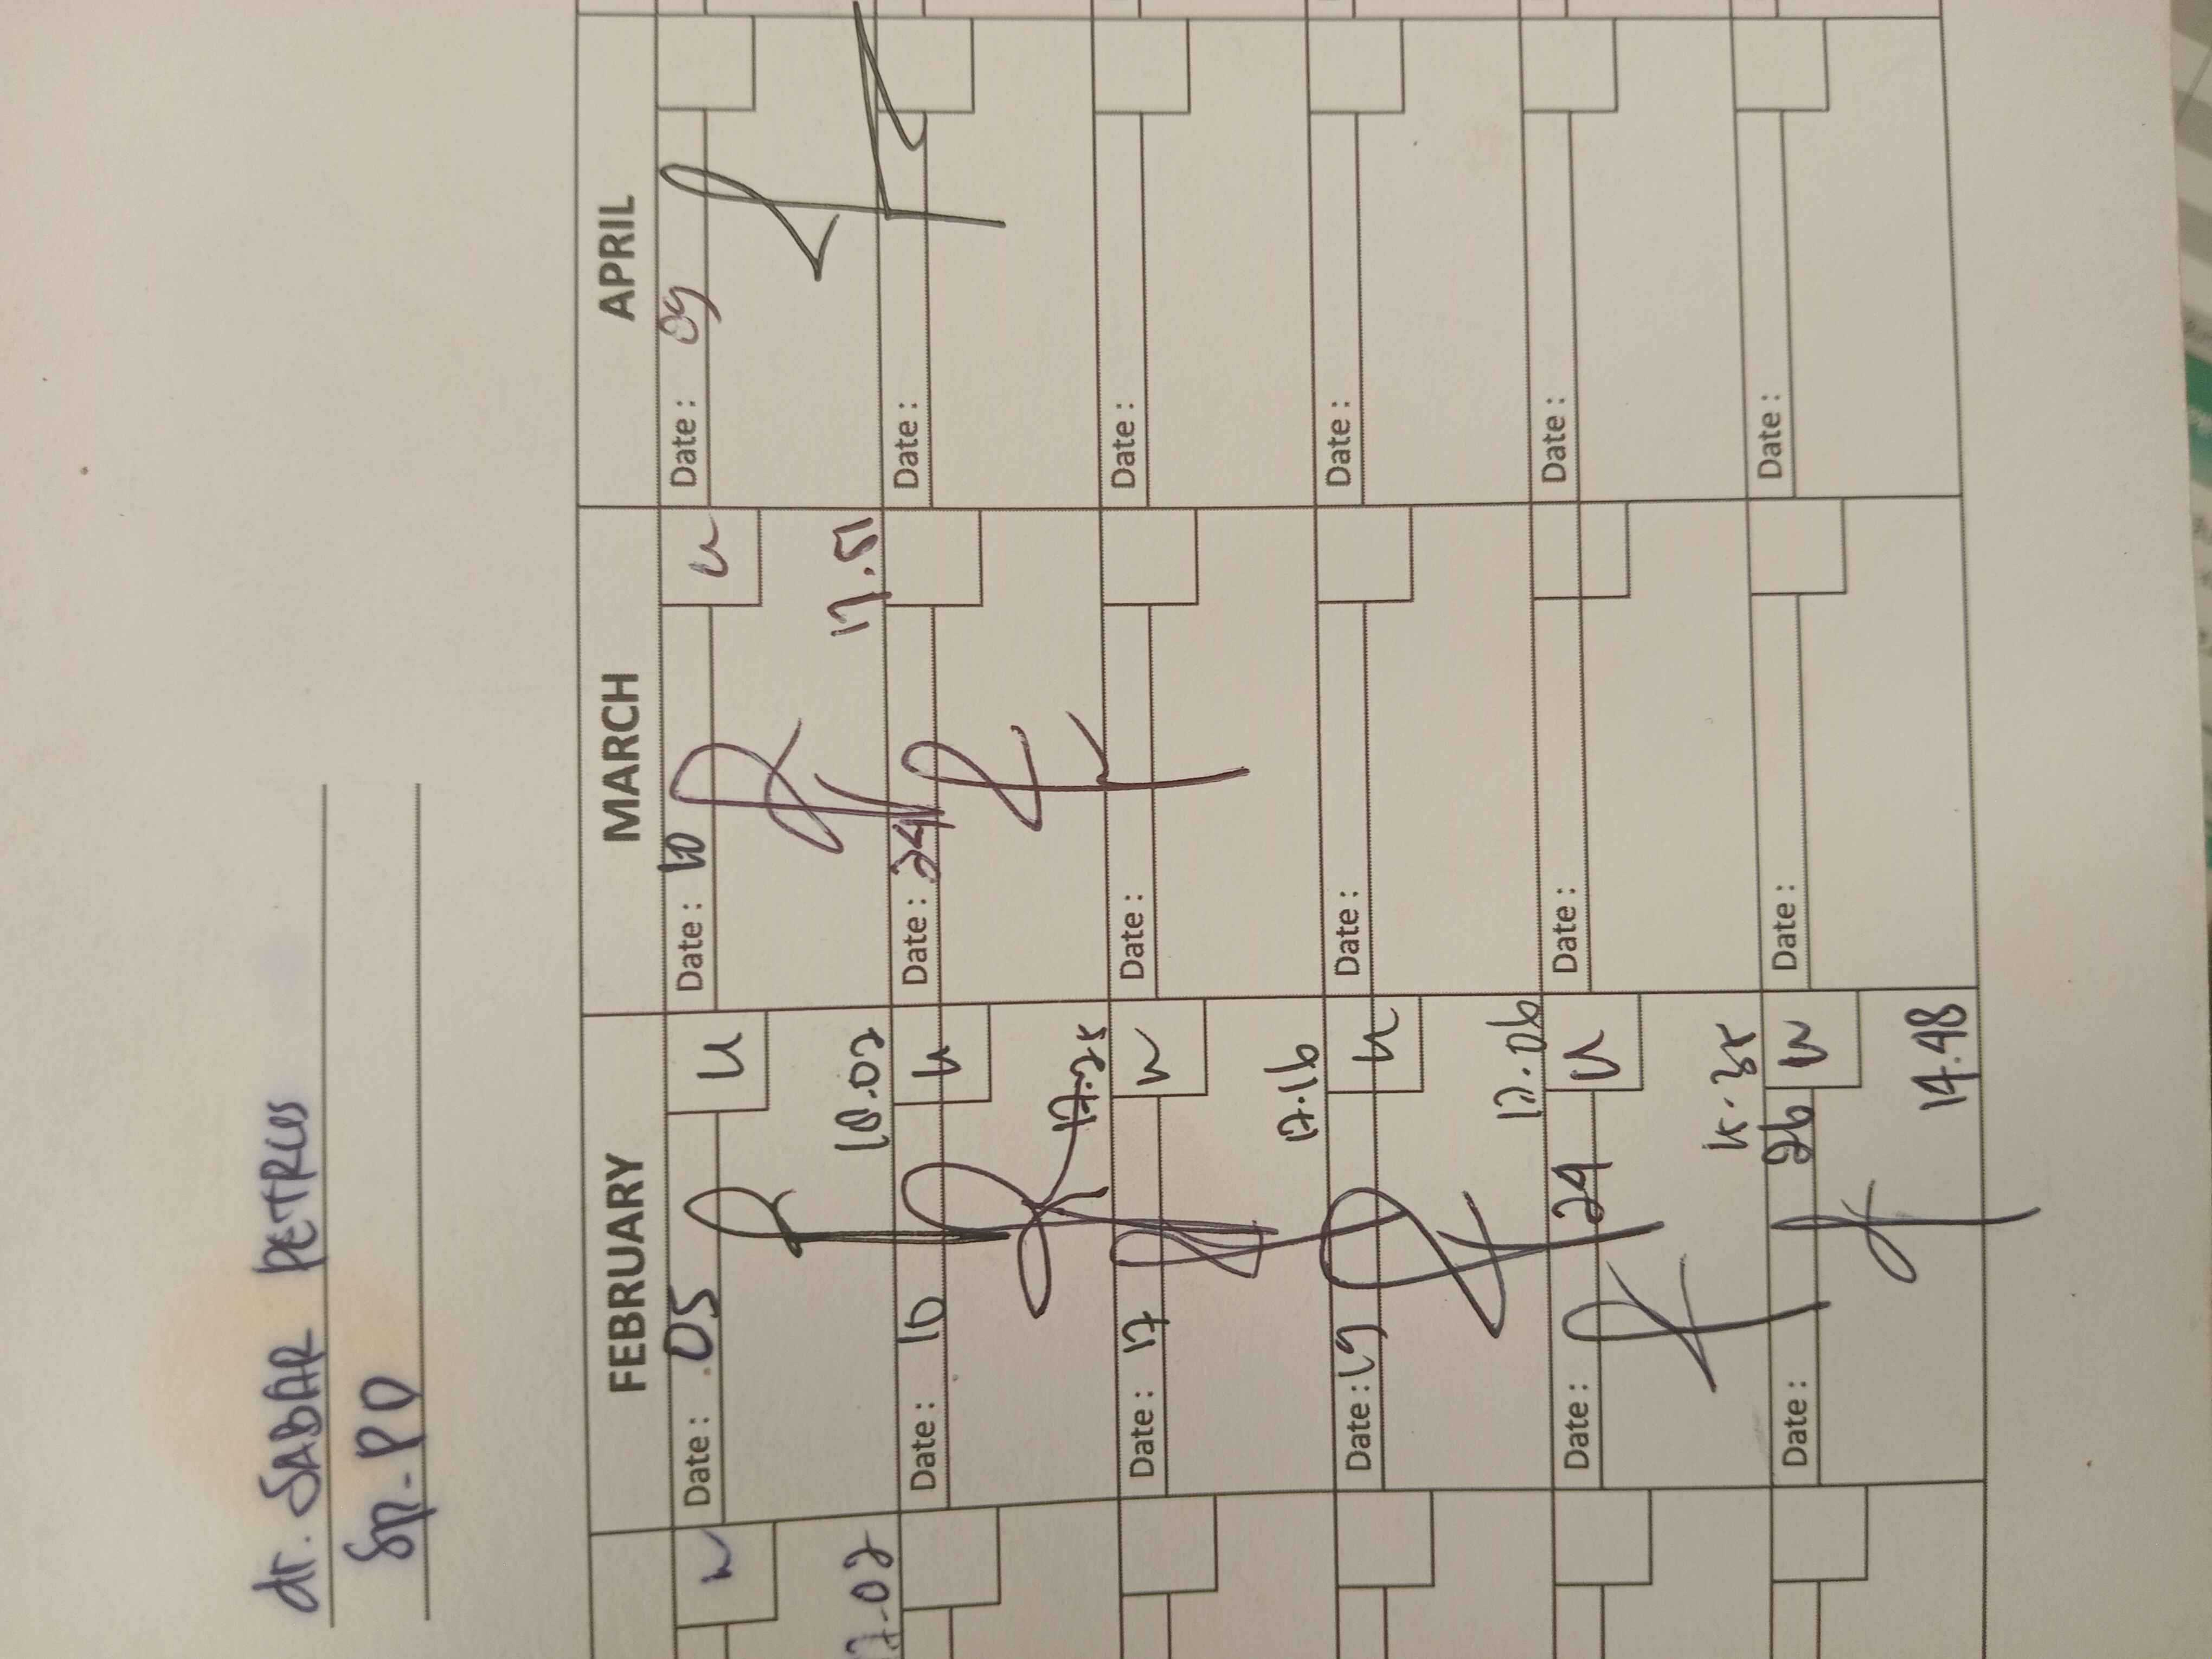 dr. SABAR PETRUS
Sp-PD
FEBRUARY MARCH APRIL
Date: 05 u Date: 10 u Date: 09
17.02 18.02 17.51
Date: 10 u Date: 24 Date:
17.25
Date: 17 u Date: Date:
17.16
Date: 19 u Date: Date:
17.06
Date: 24 u Date: Date:
Date: 26 u Date: Date:
14.48